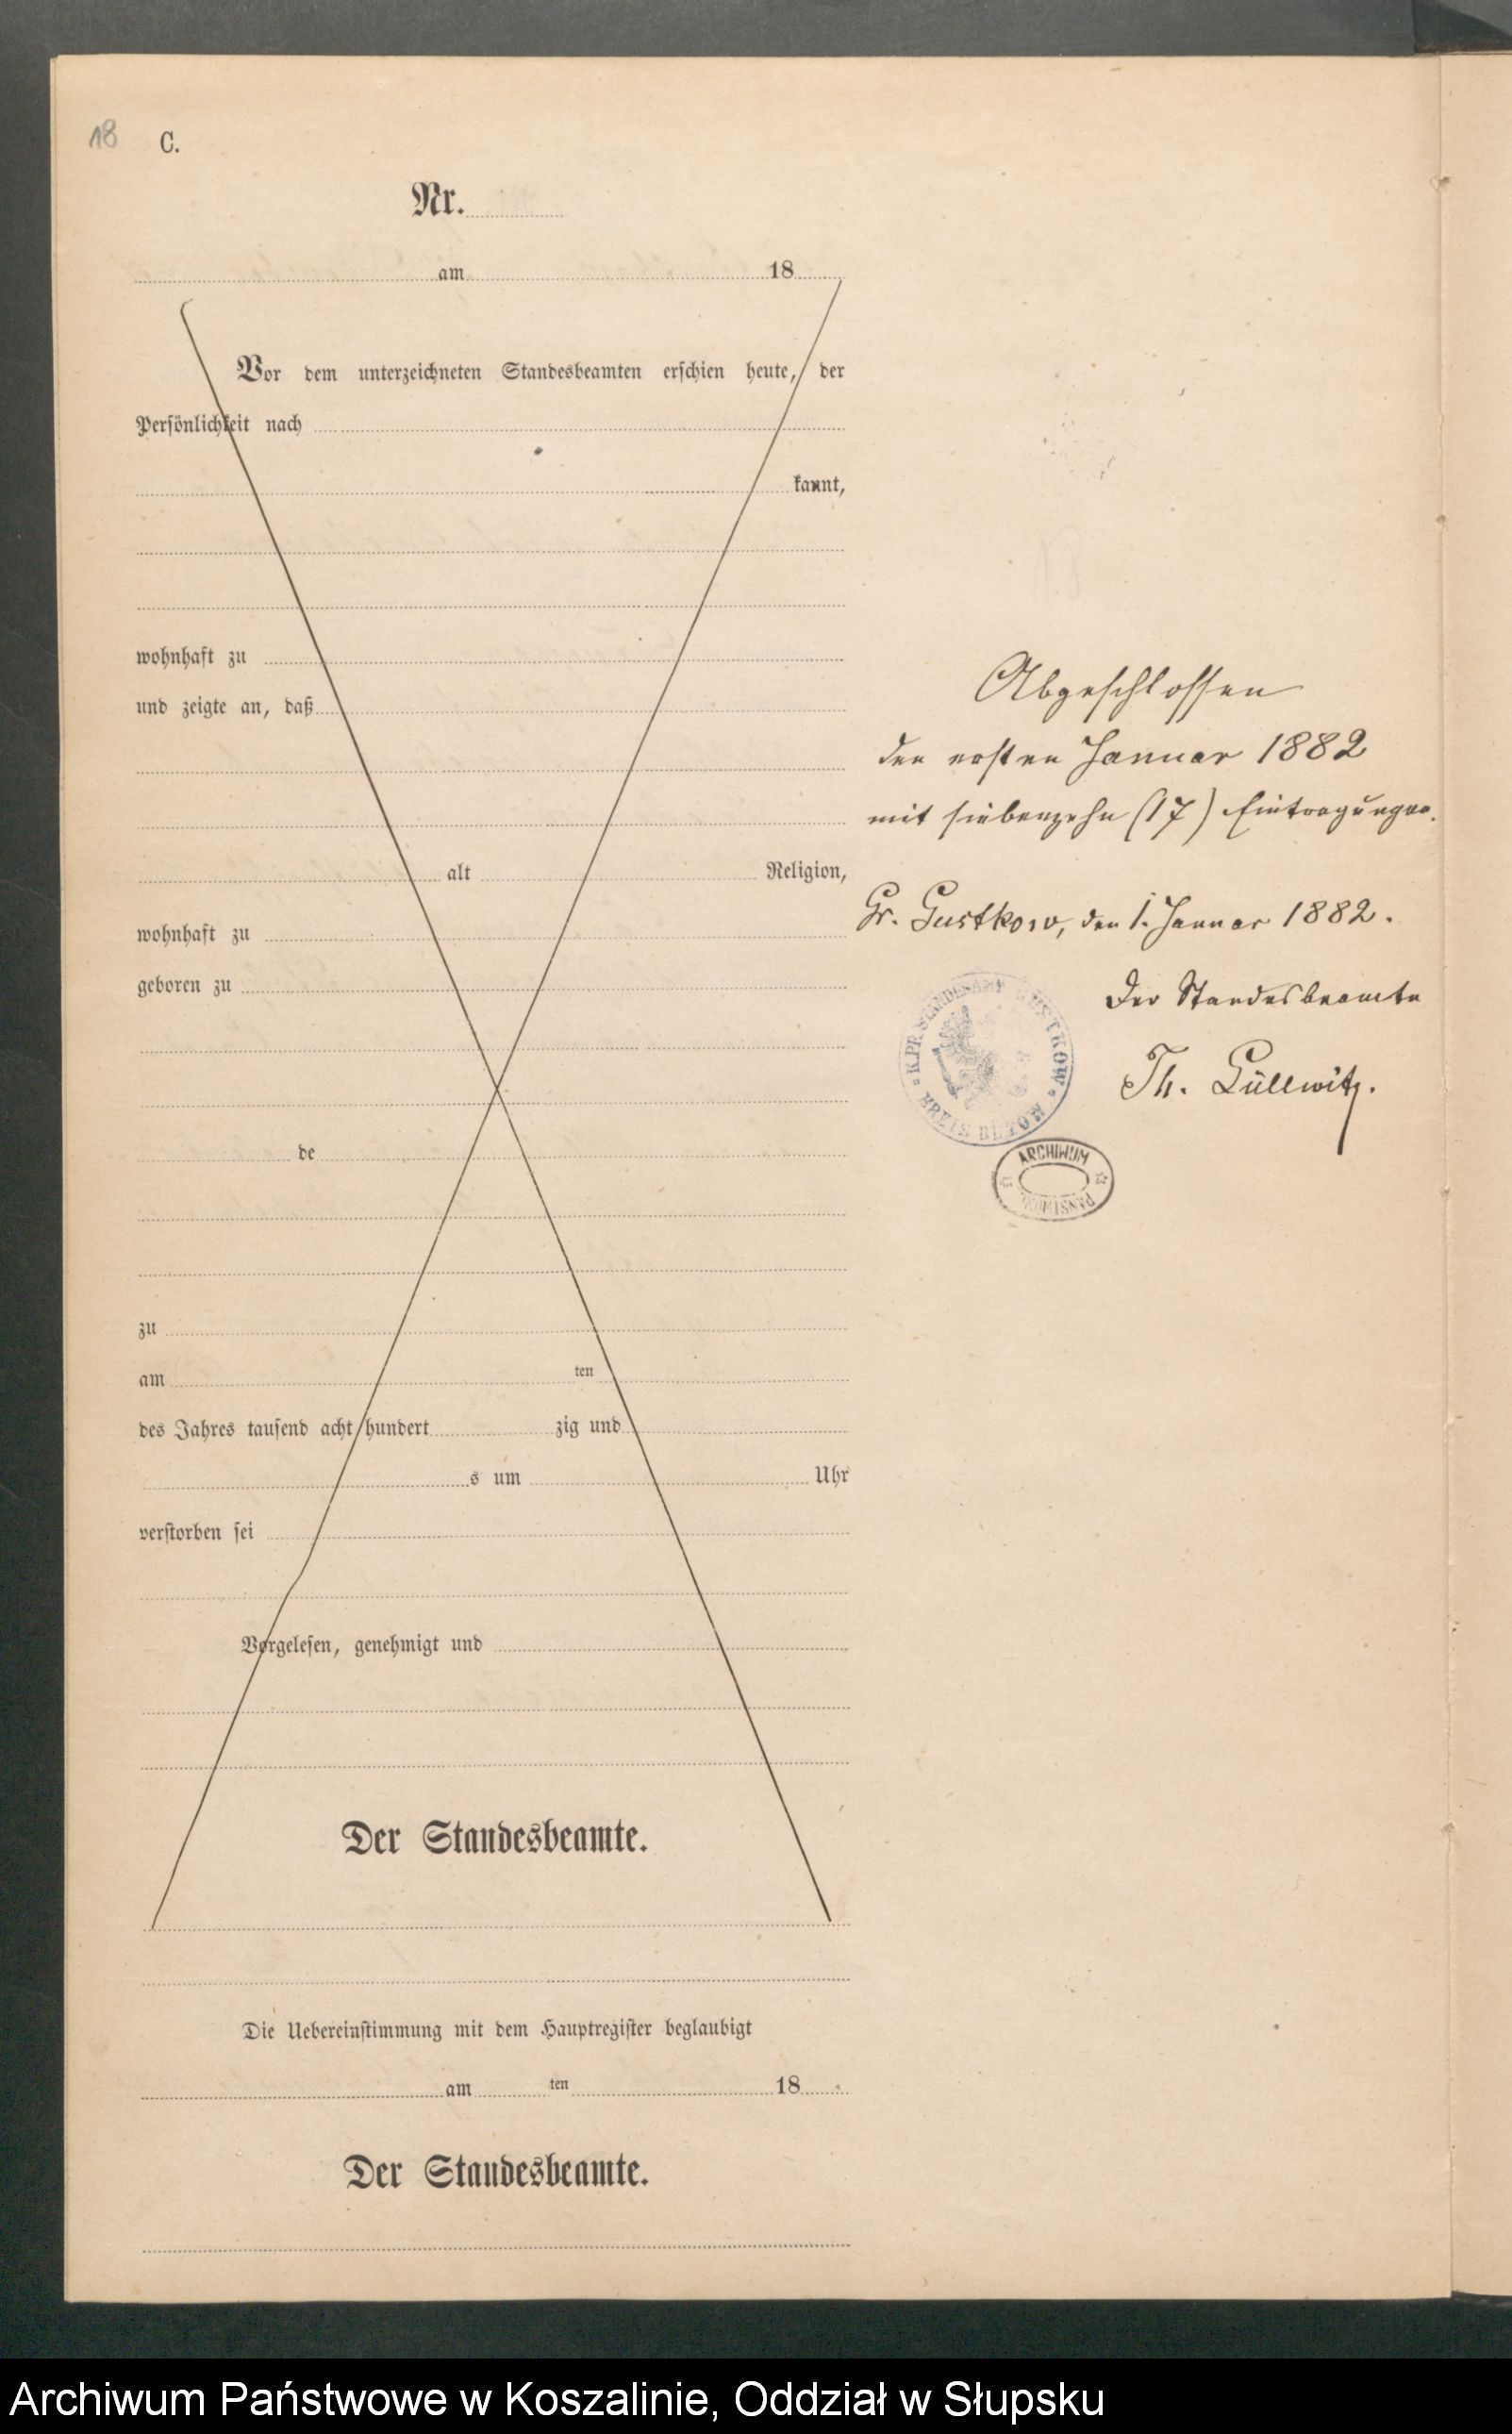 18 C.
Nr.
am 18
Vor dem unterzeichneten Standesbeamten erschien heute, der
Persönlichkeit nach
kannt,
wohnhaft zu
und zeigte an, daß
alt Religion,
wohnhaft zu
geboren zu
de
zu
am ten
des Jahres tausend acht hundert zig und
s um Uhr
verstorben sei
Vorgelesen, genehmigt und
Der Standesbeamte.
Die Uebereinstimmung mit dem Hauptregister beglaubigt
am ten 18
Der Standesbeamte.
Abgeschlossen
den ersten Januar 1882
mit siebenzehn (17) Eintragungen.
Gr. Gustkow, den 1. Januar 1882.
Der Standesbeamte
Th. Güllwitz.
K. PR. STANDESAMT GUSTKOW
KREIS BÜTOW
ARCHIWUM
Archiwum Państwowe w Koszalinie, Oddział w Słupsku